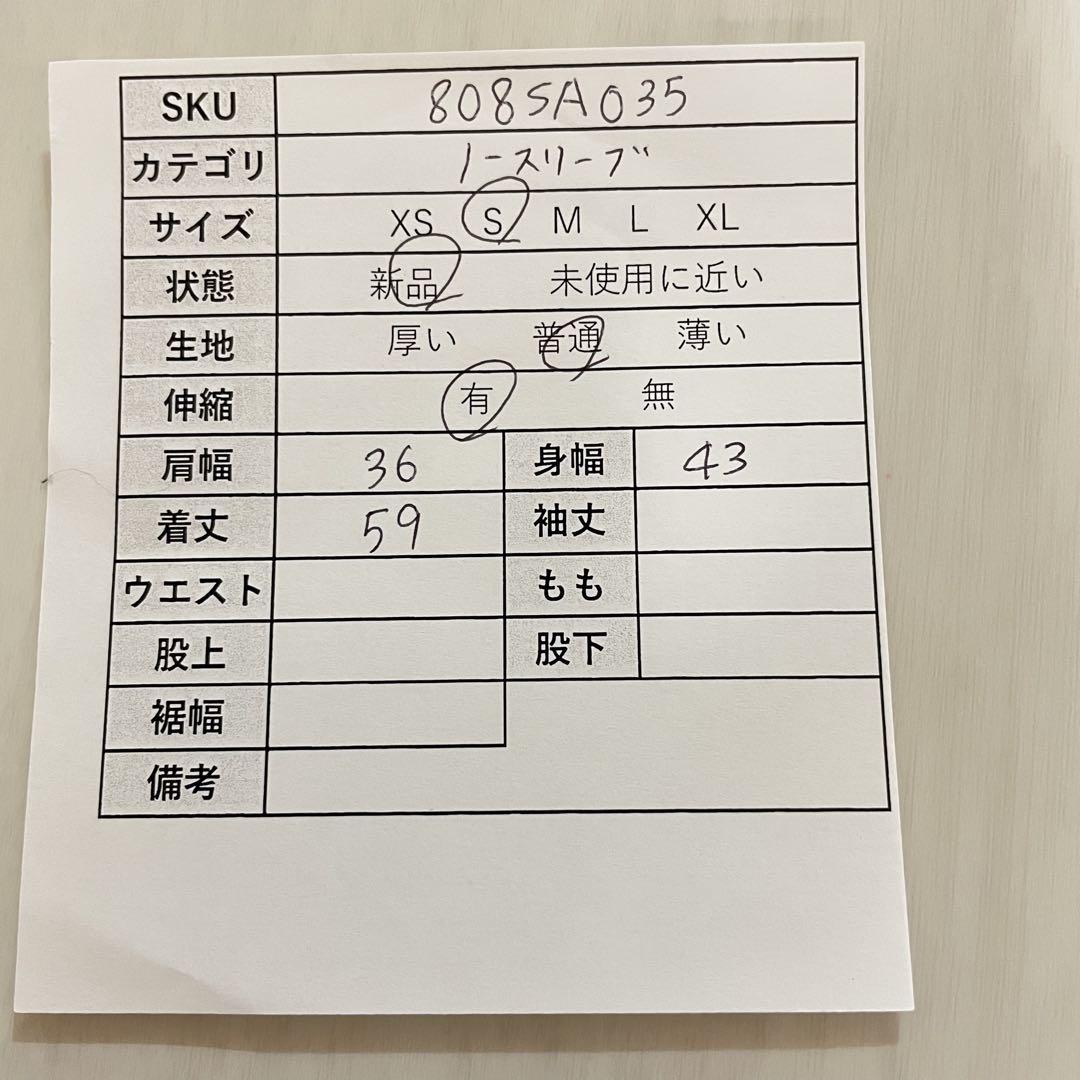 SKU 808SA035
カテゴリ ノースリーブ
サイズ XS S M L XL
状態 新品 未使用に近い
生地 厚い 普通 薄い
伸縮 有 無
肩幅 36 身幅 43
着丈 59 袖丈
ウエスト もも
股上 股下
裾幅
備考